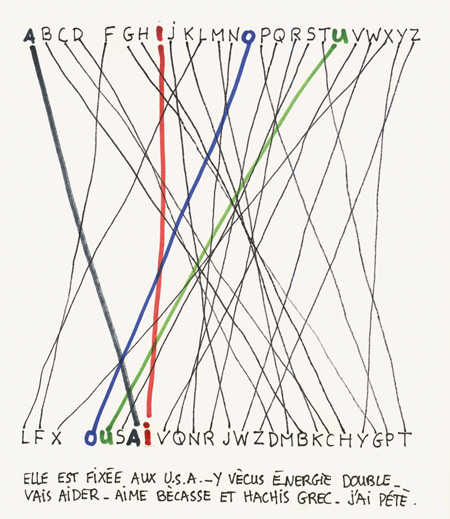 ABCD FGHijKLMNOPQRSTUVWXYZ
LFX OUSAiVQNRJWZDMBKCHYGPT
ELLE EST FIXÉE AUX U.S.A._Y VÉCUS ÉNERGIE DOUBLE_
VAIS AIDER_AIME BÉCASSE ET HACHIS GREC_ J'AI PÉTÉ.